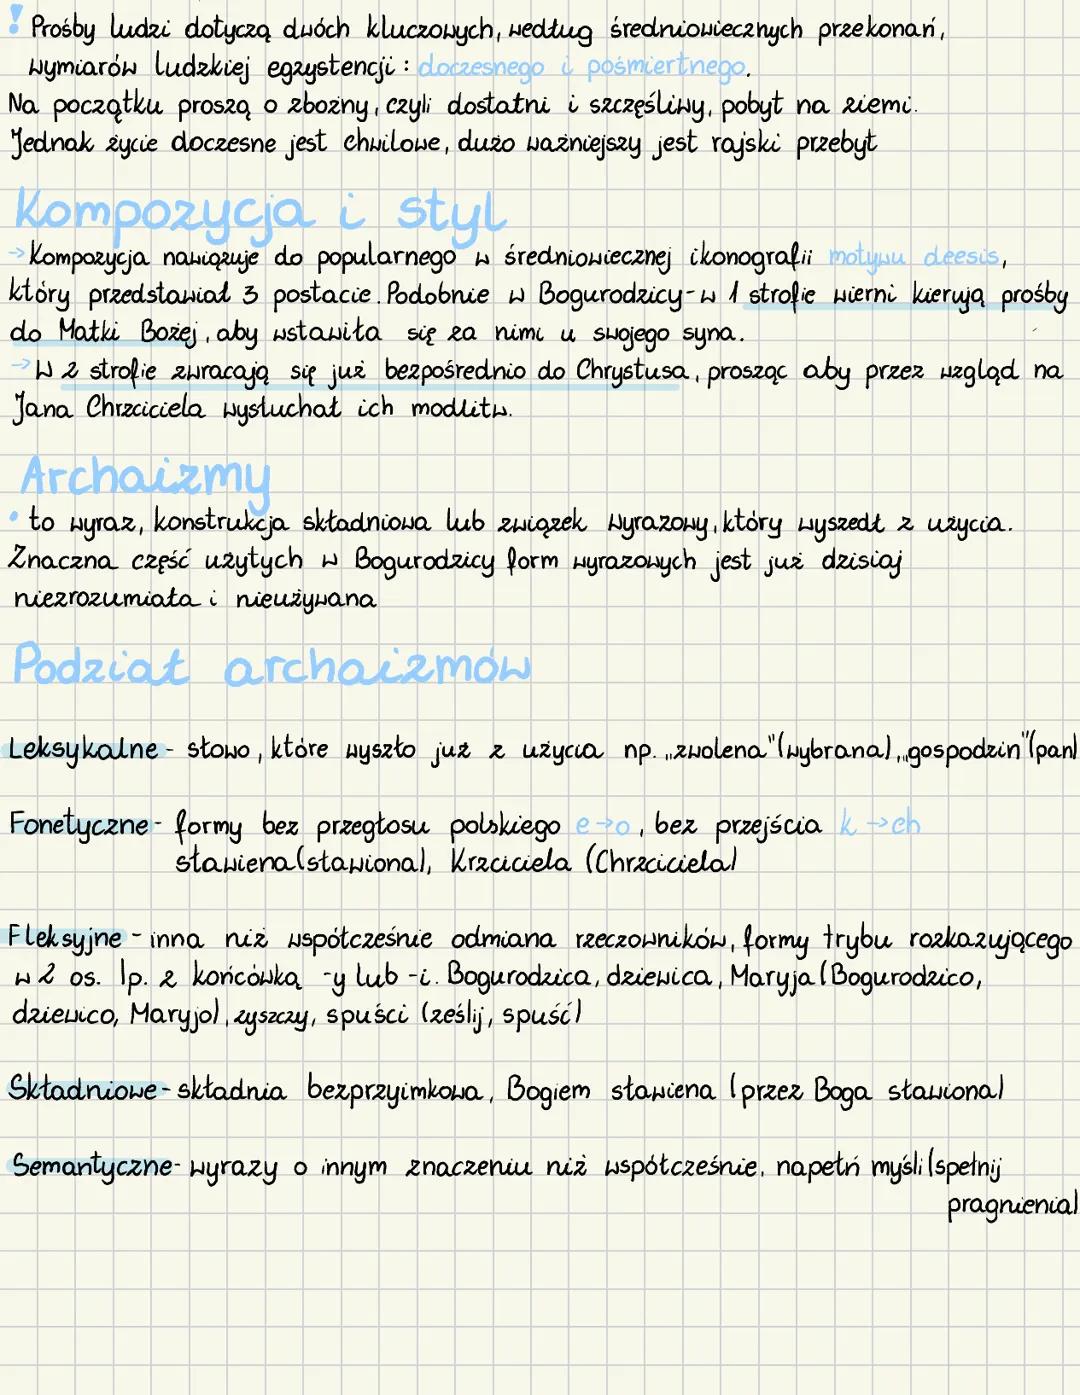 ! Prośby ludzi dotyczą dwóch kluczowych, według średniowiecznych przekonań,
wymiarów ludzkiej egzystencji: doczesnego i pośmiertnego.
Na początku proszą o zbożny, czyli dostatni i szczęśliwy, pobyt na ziemi.
Jednak życie doczesne jest chwilowe, dużo ważniejszy jest rajski przebyt
Kompozycja i styl
→ Kompozycja nawiązuje do popularnego w średniowiecznej ikonografii motywu deesis,
który przedstawiał 3 postacie. Podobnie w Bogurodzicy - w 1 strofie wierni kierują prośby
do Matki Bożej, aby wstawiła się za nimi u swojego syna.
→ W 2 strofie zwracają się już bezpośrednio do Chrystusa, prosząc aby przez wzgląd na
Jana Chrzciciela wysłuchał ich modlitw.
Archaizmy
• to wyraz, konstrukcja składniowa lub związek wyrazowy, który wyszedł z użycia.
Znaczna część użytych w Bogurodzicy form wyrazowych jest już dzisiaj
niezrozumiała i nieużywana
Podział archaizmów
Leksykalne - słowo, które wyszło już z użycia np. „zwolena" (wybrana), „gospodzin" (pan)
Fonetyczne - formy bez przegłosu polskiego e→o, bez przejścia k→ch
sławiena (sławiona), Krzciciela (Chrzciciela)
Fleksyjne - inna niż współcześnie odmiana rzeczowników, formy trybu rozkazującego
w 2 os. lp. z końcówką -y lub -i. Bogurodzica, dziewica, Maryja (Bogurodzico,
dziewico, Maryjo), zyszczy, spuści (ześlij, spuść)
Składniowe - składnia bezprzyimkowa, Bogiem sławiena (przez Boga sławiona)
Semantyczne - wyrazy o innym znaczeniu niż współcześnie, napełń myśli (spełnij
pragnienia)